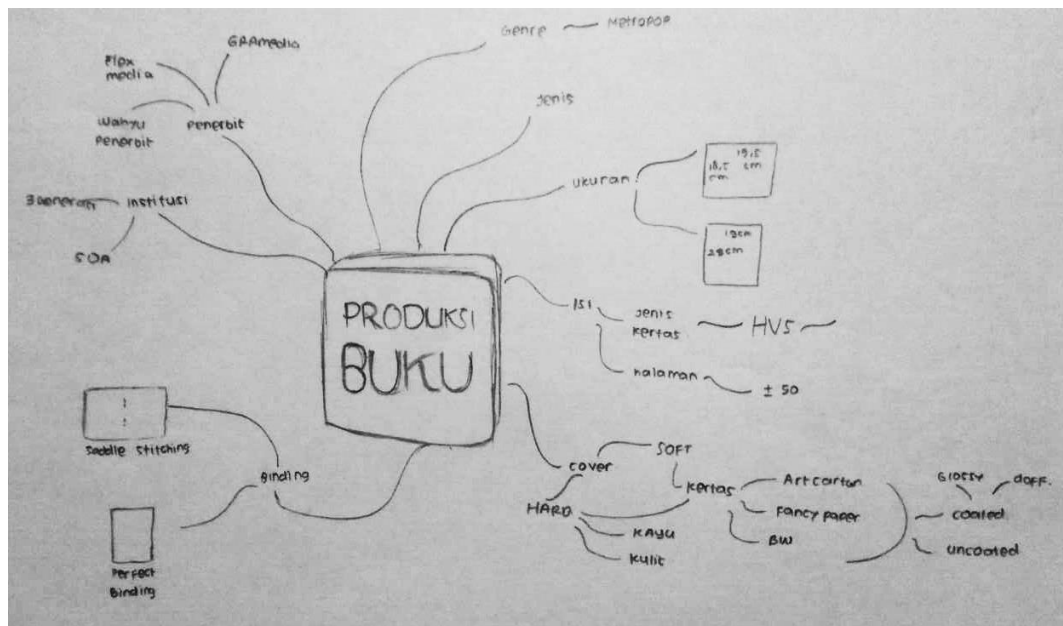 PRODUKSI
BUKU
Genre
Metropop
Jenis
Ukuran
19,5
cm
18,5
cm
19cm
28cm
ISI
Jenis
kertas
HVS
halaman
± 50
cover
SOFT
HARD
kertas
Art carton
Fancy paper
BW
KAYU
Kulit
Glossy
doff.
coated
uncoated
Binding
Saddle stitching
Perfect
Binding
Institusi
SOA
Penerbit
GRAmedia
media
Wahyu
Penerbit